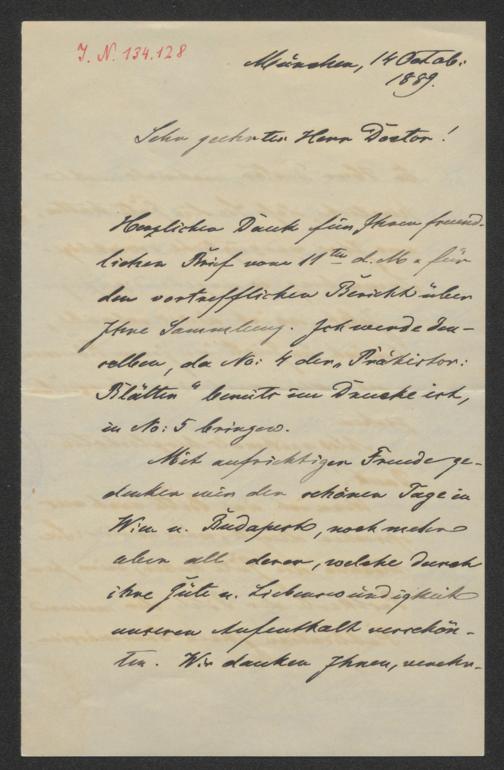 J. N. 134.128
München, 14 Octob:
1889.
Sehr geehrter Herr Doctor!
Herzlichen Dank für Ihren freund-
lichen Brief vom 11ten d. M. u für
den vortrefflichen Bericht über
Ihre Sammlung. Ich werde den-
selben, da No: 4 der „Prähistor:
Blätter“ bereits im Drucke ist,
in No: 5 bringen.
Mit aufrichtiger Freude ge-
denken wir der schönen Tage in
Wien u. Budapest, noch mehr
aber all derer, welche durch
ihre Güte u. Liebenswürdigkeit
unseren Aufenthalt verschön-
ten. Wir danken Ihnen, verehr-